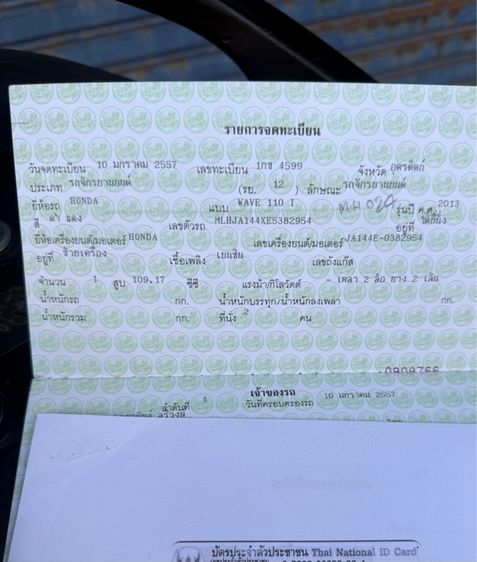 รายการจดทะเบียน
วันจดทะเบียน 10 มกราคม 2557 เลขทะเบียน 1กข 4599 จังหวัด อุตรดิตถ์
ประเภท รถจักรยานยนต์ (รย. 12 ) ลักษณะ รถจักรยานยนต์
ยี่ห้อรถ HONDA แบบ WAVE 110 I รุ่นปี ค.ศ. 2013
สี ดำ แดง เลขตัวรถ MLHJA144XE5382954 อยู่ที่
ยี่ห้อเครื่องยนต์/มอเตอร์ HONDA เลขเครื่องยนต์/มอเตอร์ JA144E-0382954
อยู่ที่ ซ้ายเครื่อง เชื้อเพลิง เบนซิน เลขถังแก๊ส
จำนวน 1 สูบ 109.17 ซีซี แรงม้า/กิโลวัตต์ - เพลา 2 ล้อ ยาง 2 เส้น
น้ำหนักรถ กก. น้ำหนักบรรทุก/น้ำหนักลงเพลา กก.
น้ำหนักรวม กก. ที่นั่ง 2 คน
เจ้าของรถ
ลำดับที่ 1 วันที่ครอบครองรถ 10 มกราคม 2557
บัตรประจำตัวประชาชน Thai National ID Card